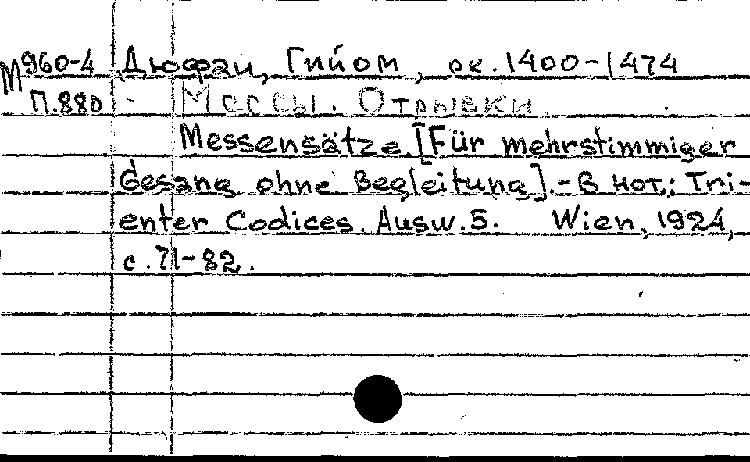 М960-4 Дюфаи, Гийом, ок. 1400-1474
П.880 Мессы. Отрывки
Messensätze [Für mehrstimmiger
Gesang ohne Begleitung]. - В нот.: Tri-
enter Codices. Ausw. 5. Wien, 1924,
с. 71-82.